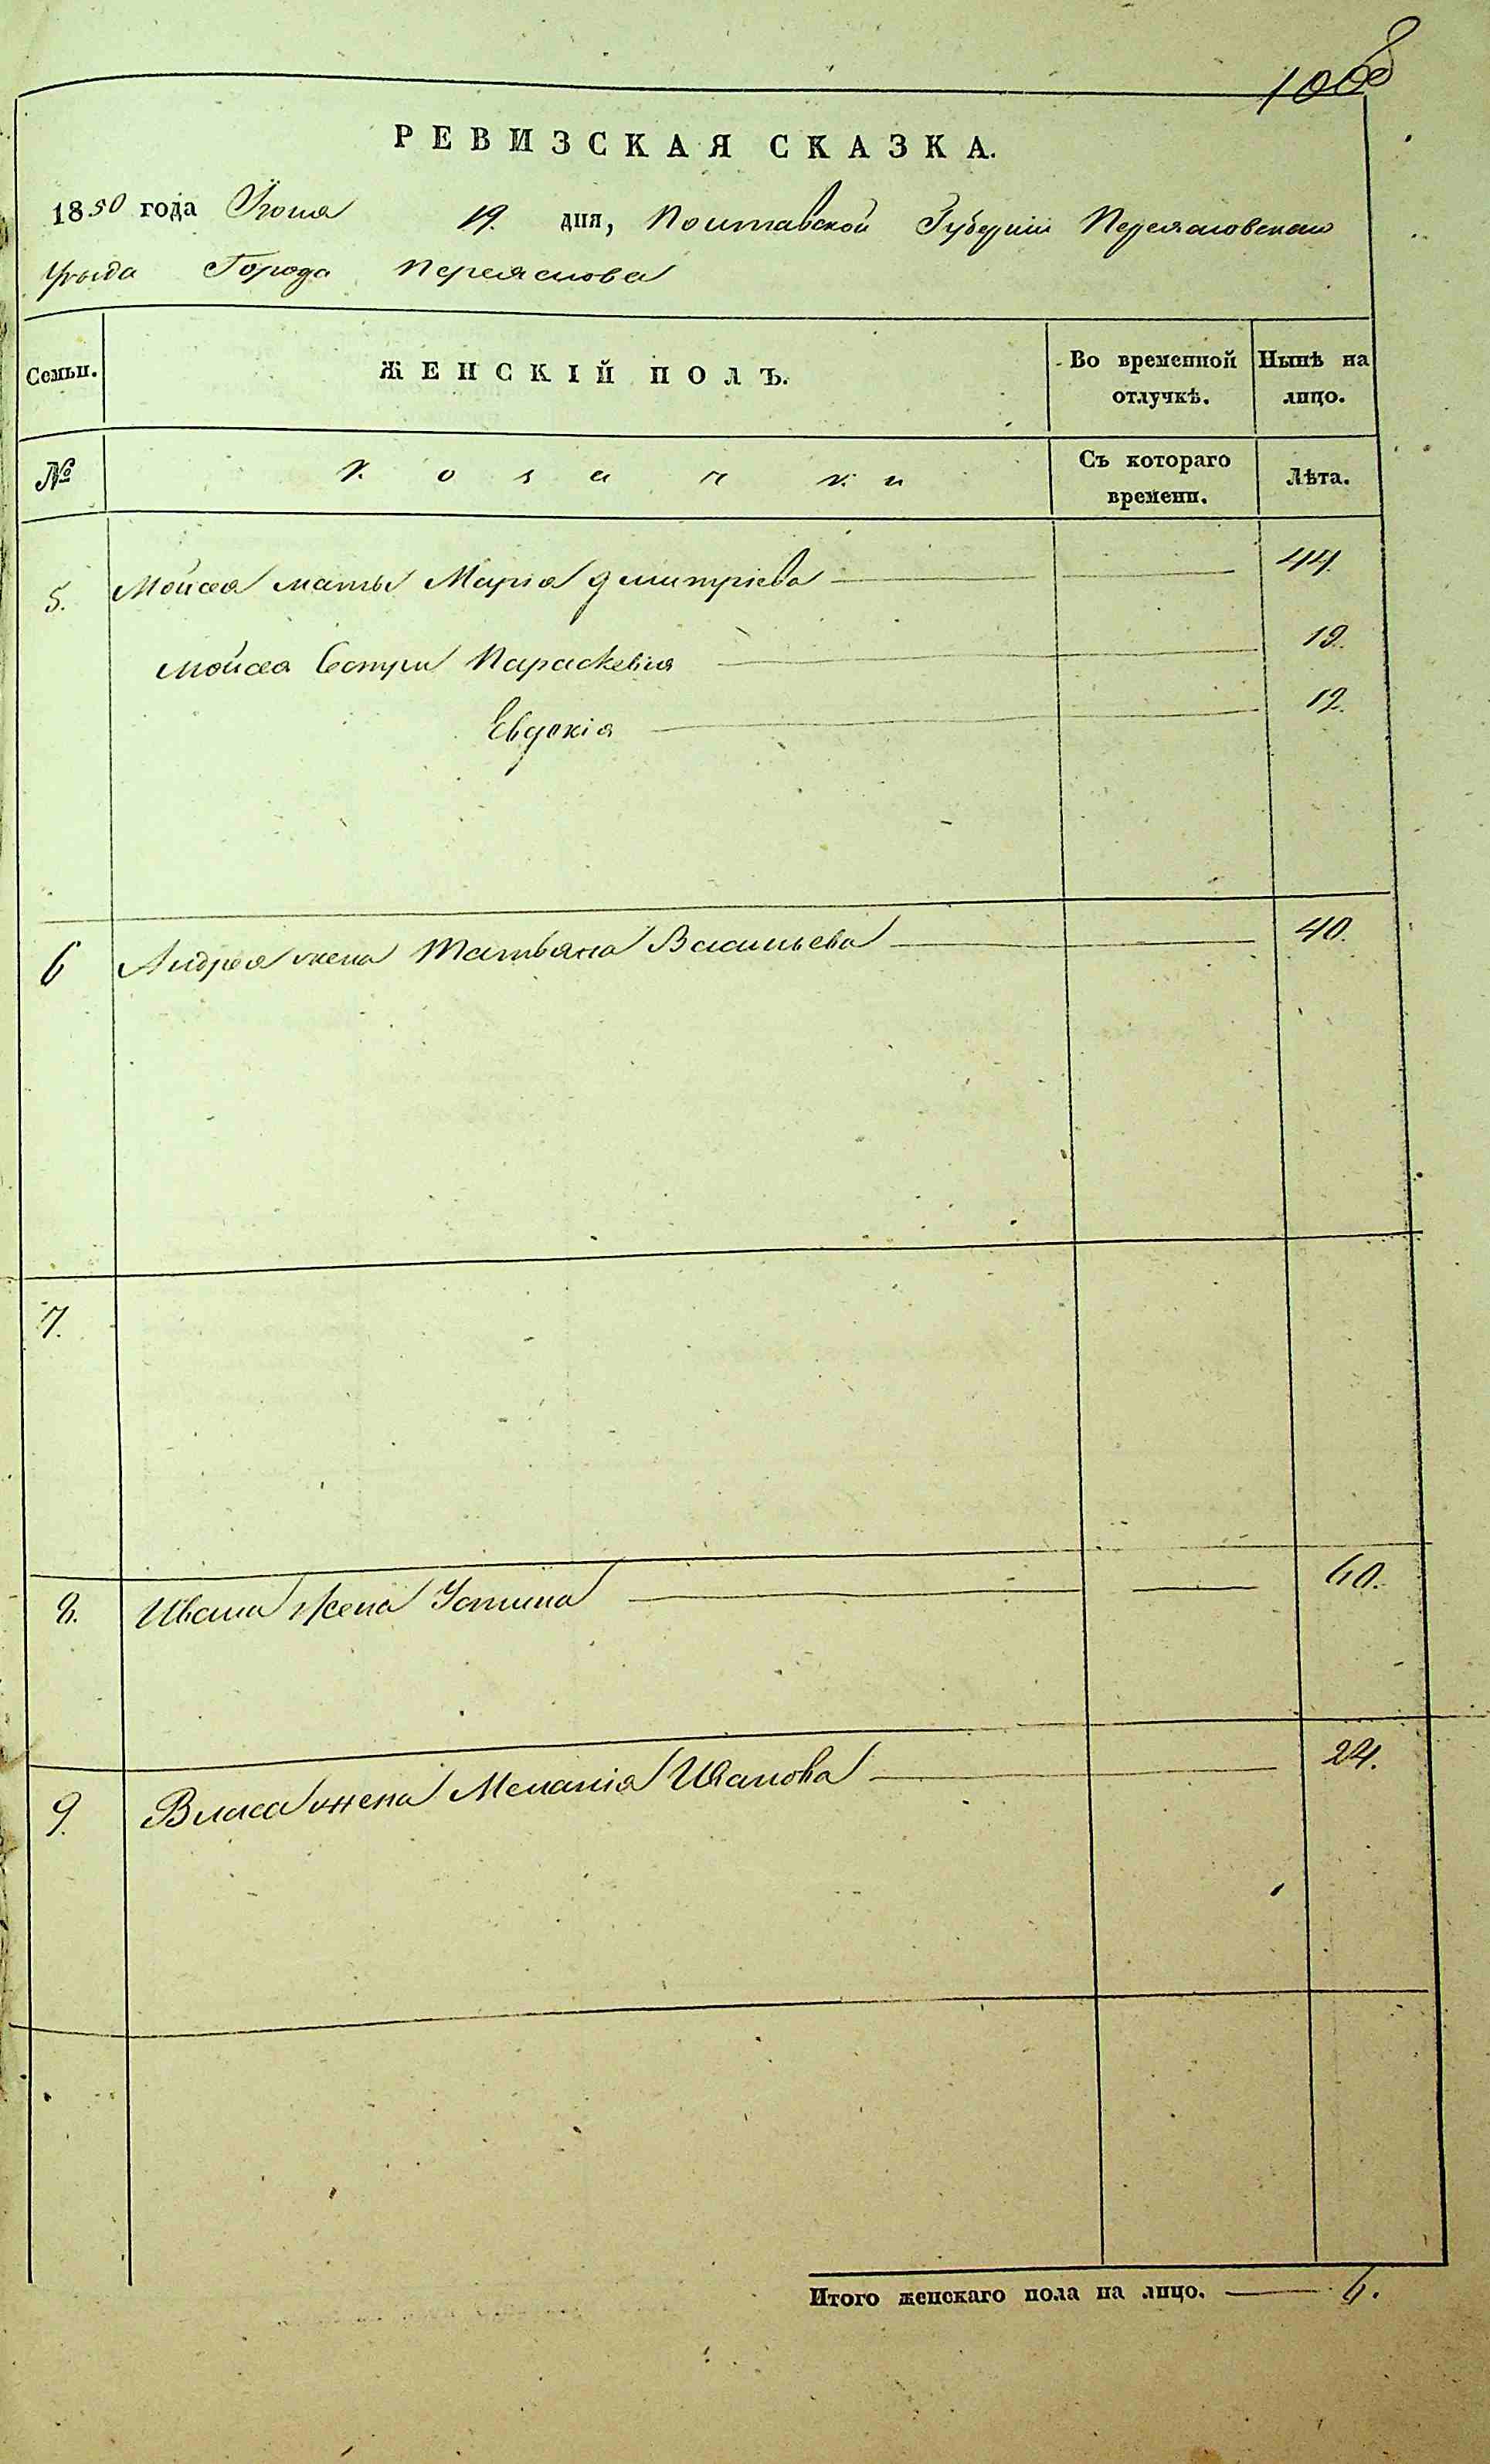 1008
РЕВИЗСКАЯ СКАЗКА.
1850 года Іюня 19. дня, Полтавской Губерніи Переяславскаго
уѣзда Города Переяслова
Семьи. ЖЕНСКІЙ ПОЛЪ. Во временной отлучкѣ. Нынѣ на лицо.
№ Козачки Съ котораго времени. Лѣта.
5. Мойсея мать Марія Дмитріева 44.
Мойсея Сестры Параскевія 19.
Евдокія 12.
6 Андрея жена Татьяна Васильева 40.
7.
8. Ивана жена Устина 60.
9. Власа жена Меланія Иванова 24.
Итого женскаго пола на лицо. 6.